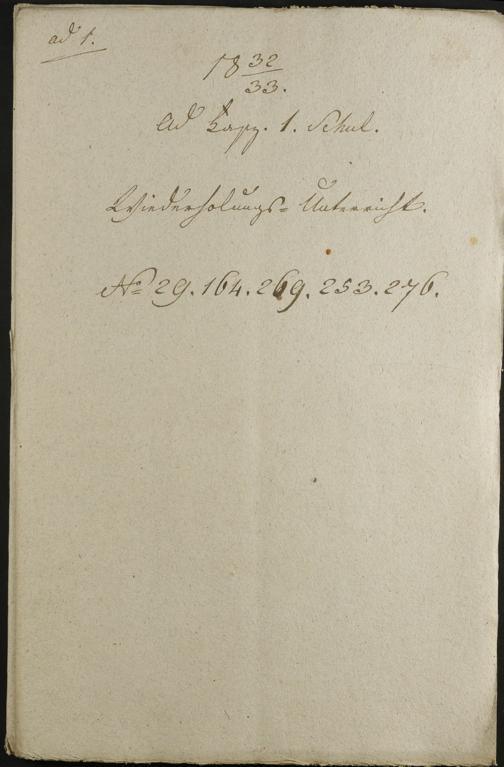 ad 1.
18 32/33.
Ad Kapz. 1. Schul.
Wiederholungs= Unterricht.
No 29. 164. 269. 253. 276.